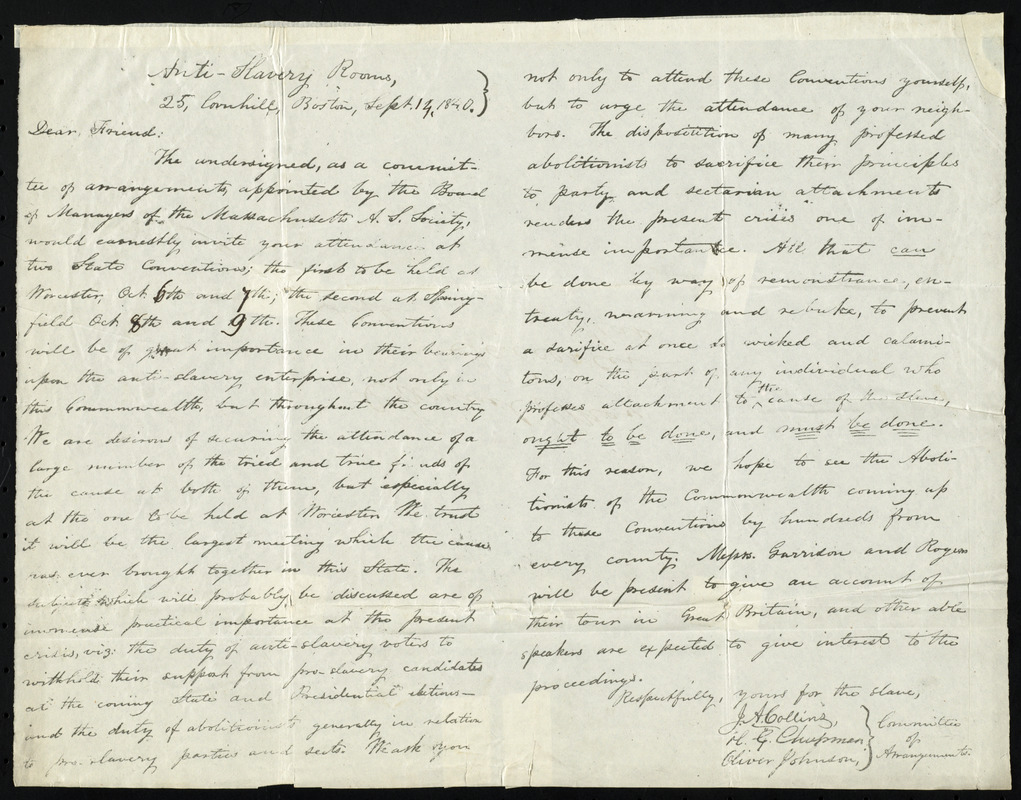 Anti-Slavery Rooms,
25, Cornhill, Boston, Sept. 14, 1840.
Dear Friend:
The undersigned, as a commit-
tee of arrangements, appointed by the Board
of Managers of the Massachusetts A. S. Society,
would earnestly invite your attendance at
two State Conventions; the first to be held at
Worcester, Oct. 6th and 7th; the second at Spring-
field Oct. 8th and 9th. These Conventions
will be of great importance in their bearings
upon the anti-slavery enterprise, not only in
this Commonwealth, but throughout the country
We are desirous of securing the attendance of a
large number of the tried and true friends of
the cause at both of them, but especially
at the one to be held at Worcester. We trust
it will be the largest meeting which the cause
has ever brought together in this State. The
subjects which will probably be discussed are of
immense practical importance at the present
crisis, viz: the duty of anti-slavery voters to
withhold their support from pro-slavery candidates
at the coming State and Presidential elections—
and the duty of abolitionists generally in relation
to pro-slavery parties and sects. We ask you
not only to attend these Conventions yourself,
but to urge the attendance of your neigh-
bors. The disposition of many professed
abolitionists to sacrifice their principles
to party and sectarian attachments
renders the present crisis one of im-
mense importance. All that can
be done by way of remonstrance, en-
treaty, warning and rebuke, to prevent
a sacrifice at once so wicked and calami-
tous, on the part of any individual who
professes attachment to the cause of the slave,
ought to be done, and must be done.
For this reason, we hope to see the Aboli-
tionists of the Commonwealth coming up
to these Conventions by hundreds from
every county. Messrs. Garrison and Rogers
will be present to give an account of
their tour in Great Britain, and other able
speakers are expected to give interest to the
proceedings.
Respectfully, yours for the slave,
J. A. Collins,
H. G. Chapman
Oliver Johnson,
Committee
of
Arrangements.